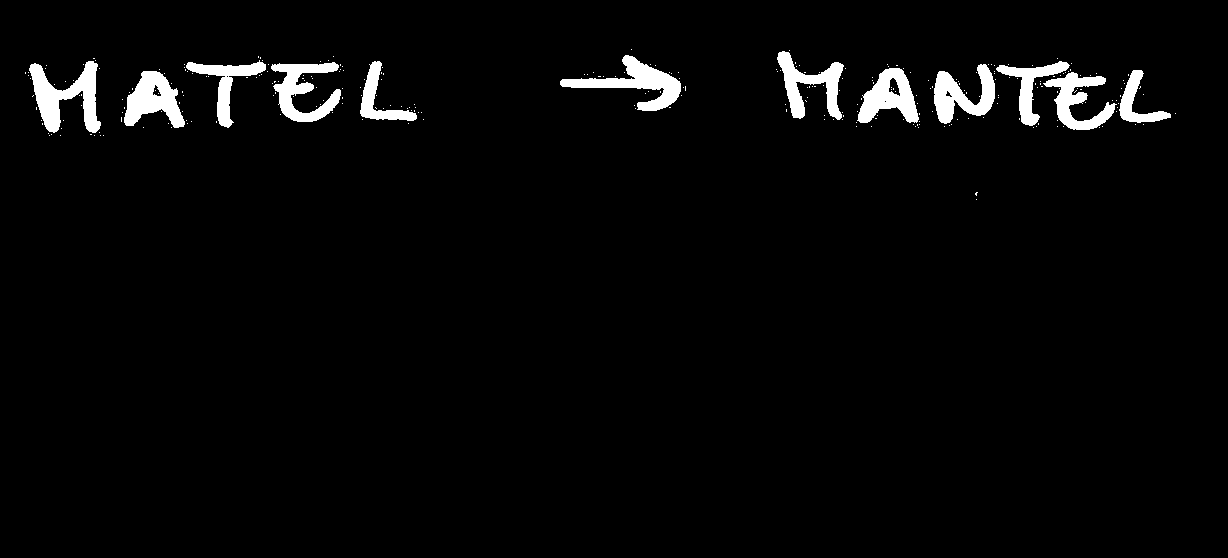 MATEL → MANTEL